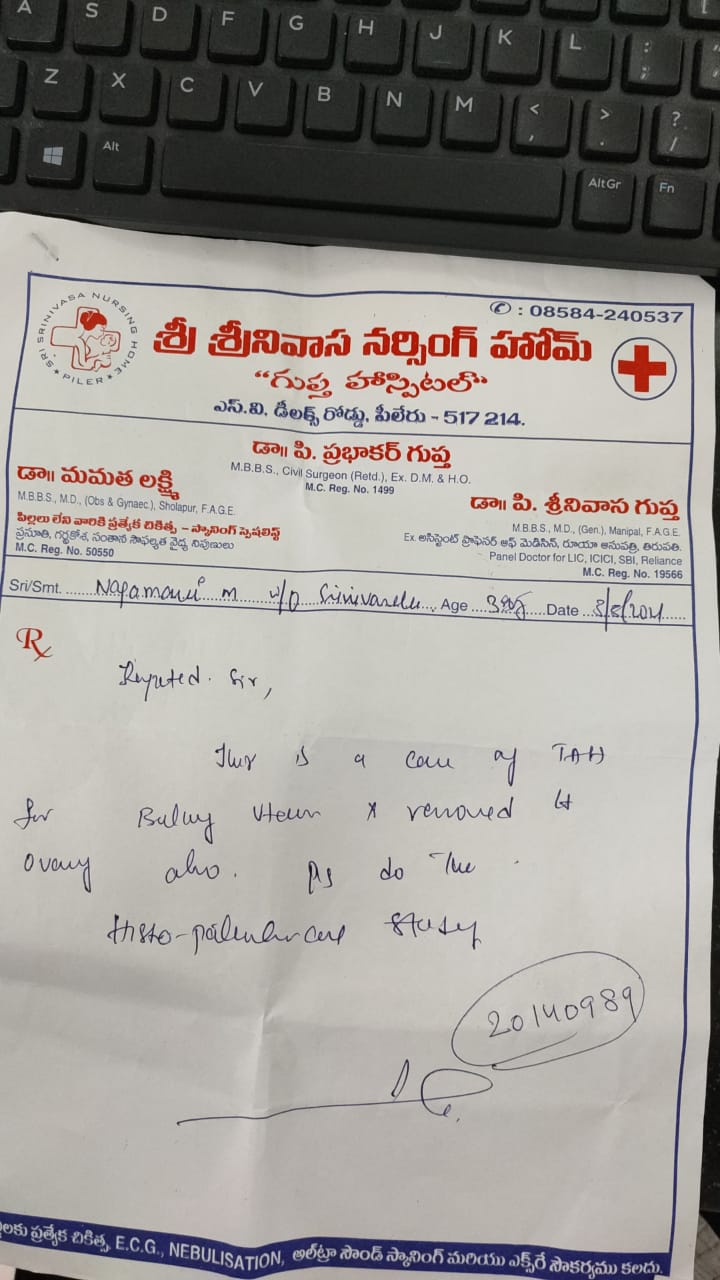 A S D F G H J K L : ;
Z X C V B N M < , > . ? /
Alt AltGr Fn
✆ : 08584-240537
SRI SRINIVASA NURSING HOME
★ PILER ★
శ్రీ శ్రీనివాస నర్సింగ్ హోమ్
"గుప్త హాస్పిటల్"
ఎస్.వి. డీలక్స్ రోడ్డు, పీలేరు - 517 214.
డా॥ పి. ప్రభాకర్ గుప్త
M.B.B.S., Civil Surgeon (Retd.), Ex. D.M. & H.O.
M.C. Reg. No. 1499
డా॥ మమత లక్ష్మి
M.B.B.S., M.D., (Obs & Gynaec.), Sholapur, F.A.G.E.
పిల్లలు లేని వారికి ప్రత్యేక చికిత్స - స్కానింగ్ స్పెషలిస్ట్
ప్రసూతి, గర్భకోశ, సంతాన సాఫల్యత వైద్య నిపుణులు
M.C. Reg. No. 50550
డా॥ పి. శ్రీనివాస గుప్త
M.B.B.S., M.D., (Gen.), Manipal, F.A.G.E.
Ex. అసిస్టెంట్ ప్రొఫెసర్ ఆఫ్ మెడిసిన్, రూయా ఆసుపత్రి, తిరుపతి.
Panel Doctor for LIC, ICICI, SBI, Reliance
M.C. Reg. No. 19566
Sri/Smt. Nagamani M w/o Srinivasulu Age Date
Rx
Respected Sir,
This is a case of TAH
for Bulky Uterus removed
Ovary also. Pls do the
Histo-pathological study
20140989
ప్రత్యేక చికిత్స, E.C.G., NEBULISATION, అల్ట్రా సౌండ్ స్కానింగ్ మరియు ఎక్స్‌రే సౌకర్యము కలదు.